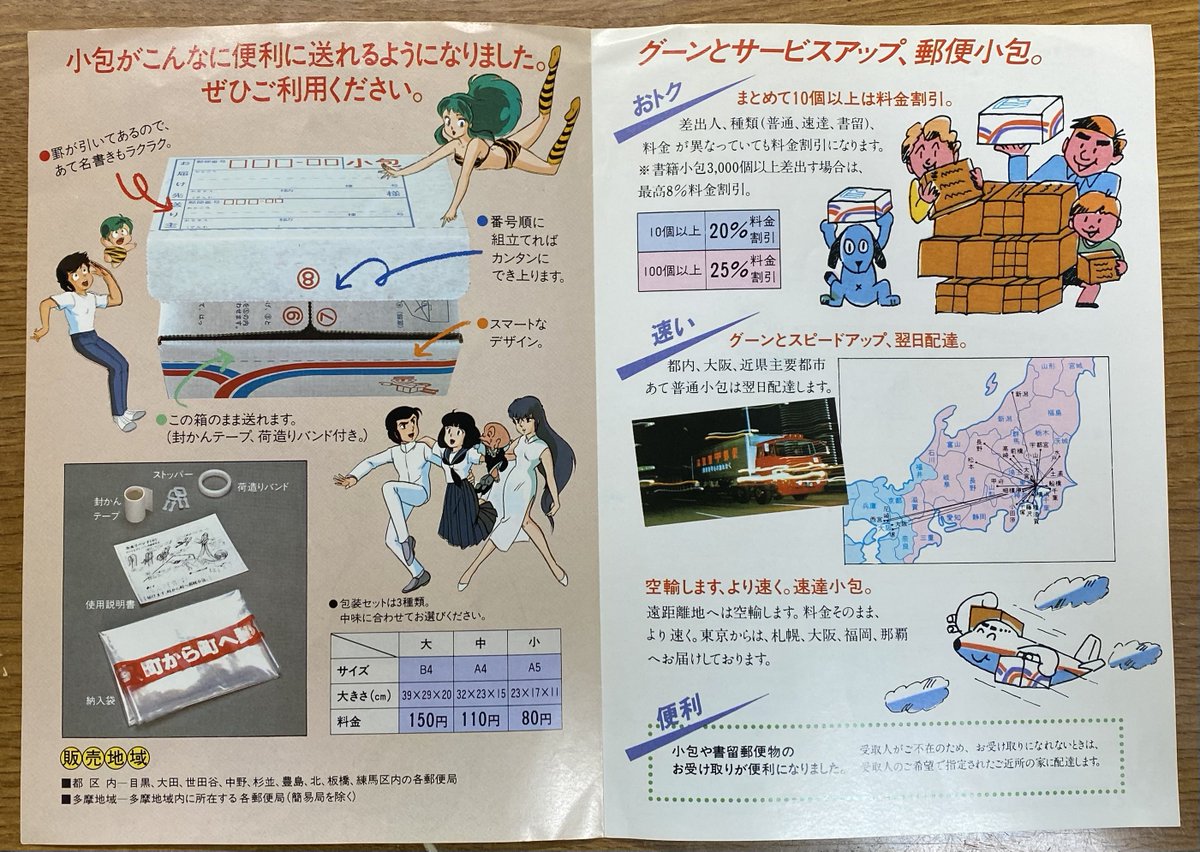 小包がこんなに便利に送れるようになりました。
ぜひご利用ください。
●罫が引いてあるので、
あて名書きもラクラク。
小包
お届け先
様
送り主
●番号順に
組立てれば
カンタンに
でき上ります。
⑧
⑥
⑦
●スマートな
デザイン。
●この箱のまま送れます。
(封かんテープ、荷造りバンド付き。)
ストッパー
荷造りバンド
封かん
テープ
使用説明書
町から町へ
納入袋
●包装セットは3種類。
中味に合わせてお選びください。
大 中 小
サイズ B4 A4 A5
大きさ(cm) 39×29×20 32×23×15 23×17×11
料金 150円 110円 80円
販売地域
■都区内—目黒、大田、世田谷、中野、杉並、豊島、北、板橋、練馬区内の各郵便局
■多摩地域—多摩地域内に所在する各郵便局(簡易局を除く)
グーンとサービスアップ、郵便小包。
おトク
まとめて10個以上は料金割引。
差出人、種類(普通、速達、書留)、
料金が異なっていても料金割引になります。
※書籍小包3,000個以上差出す場合は、
最高8%料金割引。
10個以上 20%料金割引
100個以上 25%料金割引
速い
グーンとスピードアップ、翌日配達。
都内、大阪、近県主要都市
あて普通小包は翌日配達します。
山形
宮城
新潟
新潟
福島
富山
石川
福井
長野
長野
松本
群馬
前橋
栃木
宇都宮
茨城
小山
岐阜
甲府
船橋
千葉
京都
滋賀
兵庫
愛知
静岡
三重
奈良
大阪
西宮
尼崎
小田原
空輸します、より速く。速達小包。
遠距離地へは空輸します。料金そのまま、
より速く。東京からは、札幌、大阪、福岡、那覇
へお届けしております。
便利
小包や書留郵便物の
お受け取りが便利になりました。
受取人がご不在のため、お受け取りになれないときは、
受取人のご希望で指定されたご近所の家に配達します。